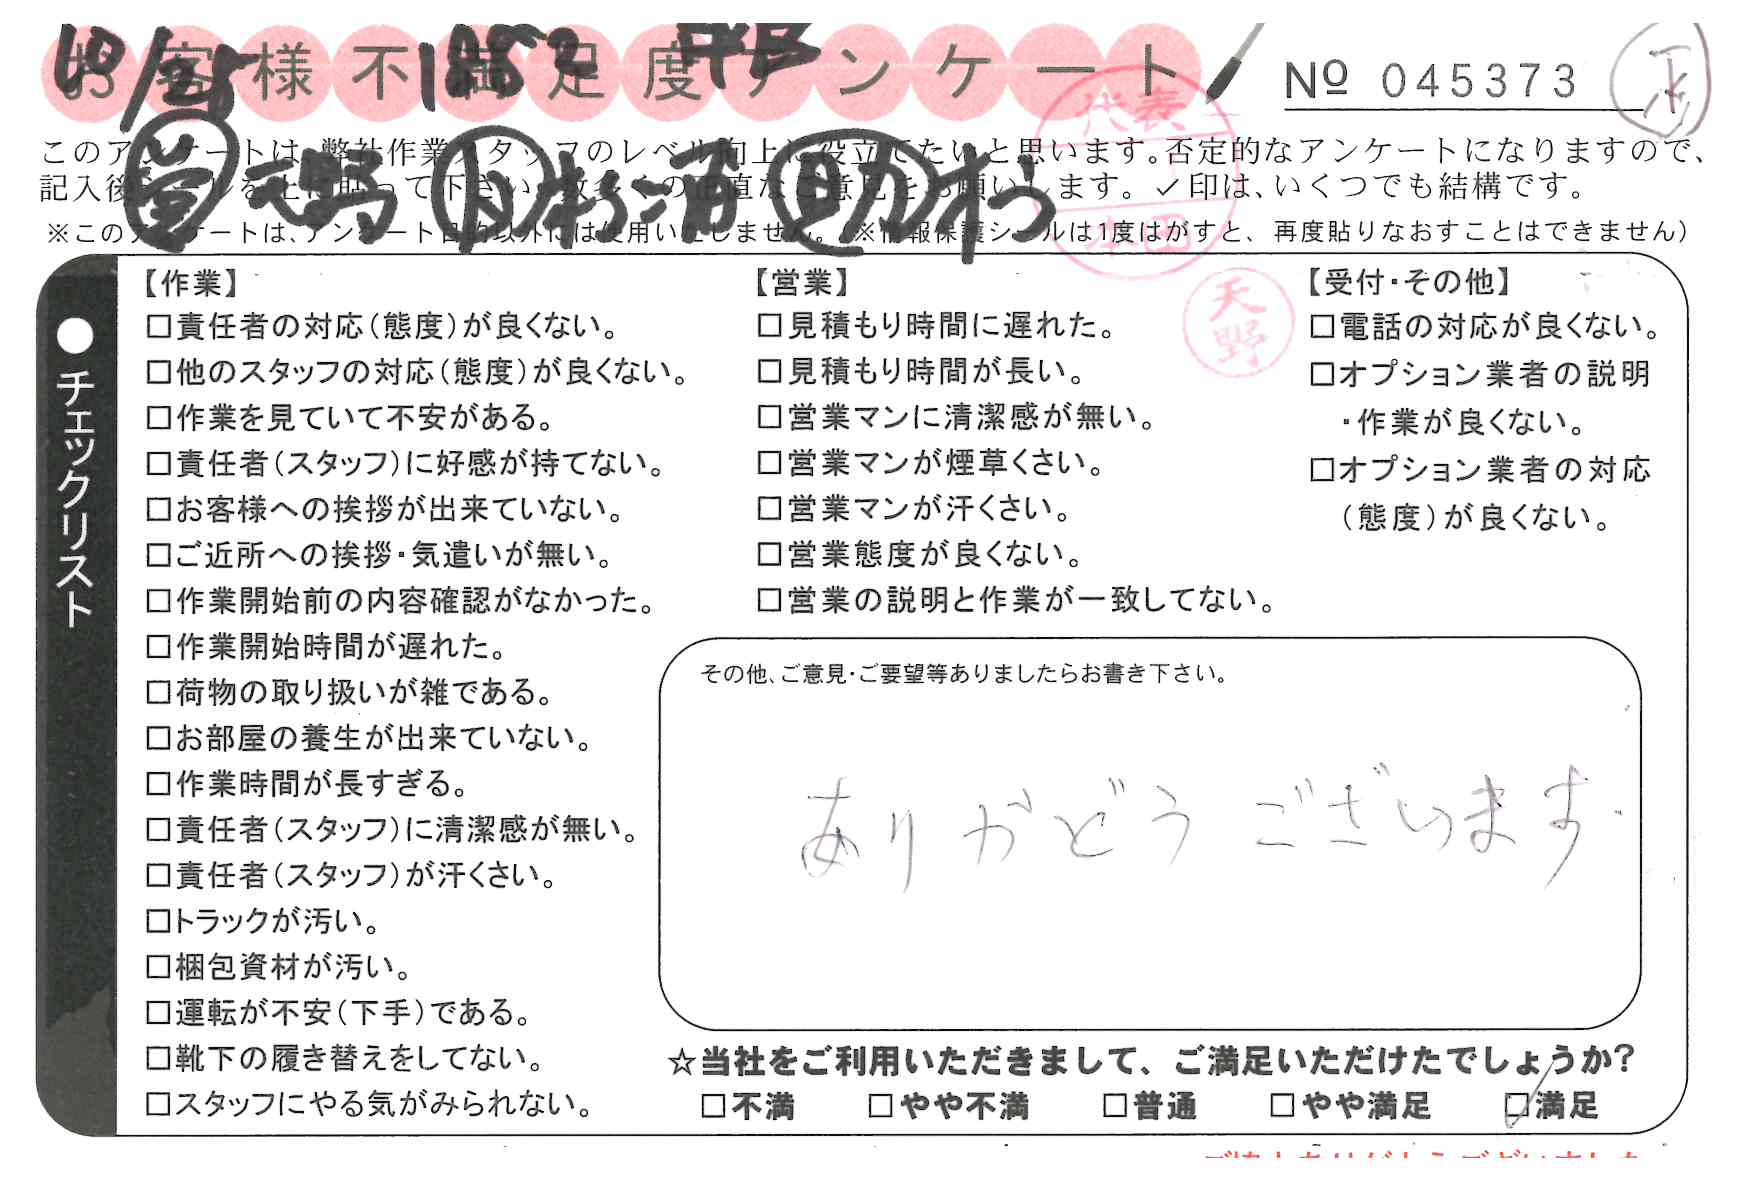 お客様不満足度アンケート
10/25 1852
№ 045373
このアンケートは、弊社作業スタッフのレベル向上に役立てたいと思います。否定的なアンケートになりますので、
記入後シールを上に貼って下さい。数多くの正直なご意見をお願いします。✓印は、いくつでも結構です。
※このアンケートは、アンケート目的以外には使用いたしません。(※情報保護シールは1度はがすと、再度貼りなおすことはできません)
代表
本田
天野
●チェックリスト
【作業】
□責任者の対応(態度)が良くない。
□他のスタッフの対応(態度)が良くない。
□作業を見ていて不安がある。
□責任者(スタッフ)に好感が持てない。
□お客様への挨拶が出来ていない。
□ご近所への挨拶・気遣いが無い。
□作業開始前の内容確認がなかった。
□作業開始時間が遅れた。
□荷物の取り扱いが雑である。
□お部屋の養生が出来ていない。
□作業時間が長すぎる。
□責任者(スタッフ)に清潔感が無い。
□責任者(スタッフ)が汗くさい。
□トラックが汚い。
□梱包資材が汚い。
□運転が不安(下手)である。
□靴下の履き替えをしてない。
□スタッフにやる気がみられない。
【営業】
□見積もり時間に遅れた。
□見積もり時間が長い。
□営業マンに清潔感が無い。
□営業マンが煙草くさい。
□営業マンが汗くさい。
□営業態度が良くない。
□営業の説明と作業が一致してない。
【受付・その他】
□電話の対応が良くない。
□オプション業者の説明
・作業が良くない。
□オプション業者の対応
(態度)が良くない。
その他、ご意見・ご要望等ありましたらお書き下さい。
ありがどうございます.
☆当社をご利用いただきまして、ご満足いただけたでしょうか?
□不満 □やや不満 □普通 □やや満足 ☑満足